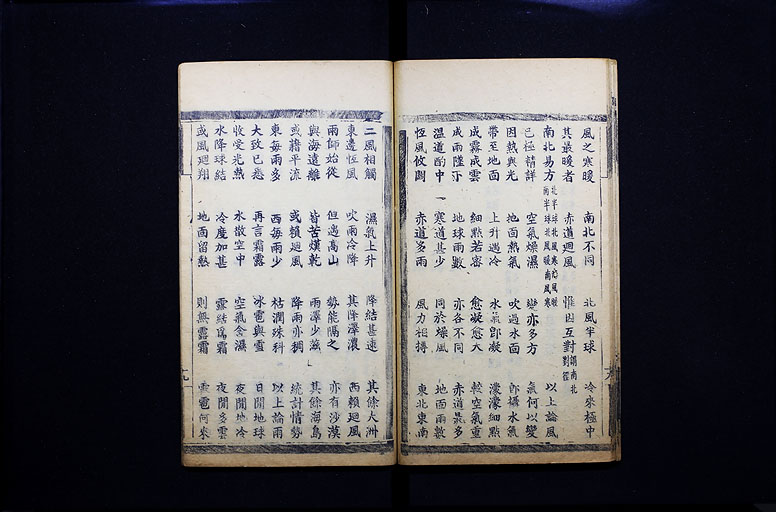 風之寒暖　南北不同　北風半球　冷來極中
其最暖者　赤道廻風　惟因互對謂南北對徑
南北易方北半球北風寒南風暖南半球北風暖南風寒
已極精詳　空氣燥濕　變亦多方　以上論風
因熱與光　地面熱氣　吹過水面　氣何以變
帶至地面　上升遇冷　水氣卽凝　卽攝水氣
成霧成雲　細點若密　愈凝愈大　濛濛細點
成雨墮下　地球雨數　亦各不同　較空氣重
溫道酌中　寒道甚少　同於燥風　赤道最多
恆風攸關　赤道多雨　風力相摶　地面雨數
東北東南
二風相觸　濕氣上升　降結甚速　其餘大洲
東邊恆風　吹雨冷降　其降澤濃　西賴廻風
兩師始從　但遇高山　勢能隔之　亦有沙漠
與海遠離　皆苦熯乾　雨澤少濊　其餘海島
或藉平流　或賴廻風　降雨亦稠　統計情勢
東每雨多　西每雨少　枯潤殊科　以上論雨
大致已悉　再言霜露　冰雹與雪　日間地球
收受光熱　水散空中　空氣含濕　夜間地冷
水降球結　冷度加甚　露結爲霜　夜間多雲
或風廻翔　地面留熱　則無露霜　雪雹何來
十九